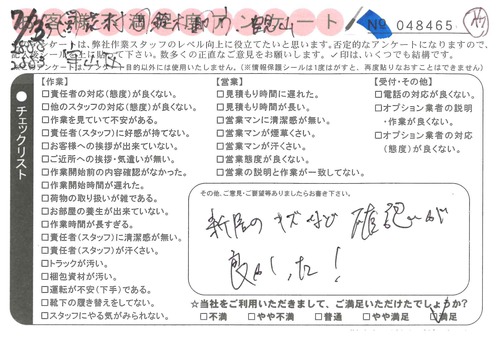 № 048465
アンケートは、弊社作業スタッフのレベル向上に役立てたいと思います。否定的なアンケートになりますので、
数多くの正直なご意見をお願いします。✓印は、いくつでも結構です。
アンケート目的以外には使用いたしません。(※情報保護シールは1度はがすと、再度貼りなおすことはできません)
チェックリスト
【作業】
□責任者の対応(態度)が良くない。
□他のスタッフの対応(態度)が良くない。
□作業を見ていて不安がある。
□責任者(スタッフ)に好感が持てない。
□お客様への挨拶が出来ていない。
□ご近所への挨拶・気遣いが無い。
□作業開始前の内容確認がなかった。
□作業開始時間が遅れた。
□荷物の取り扱いが雑である。
□お部屋の養生が出来ていない。
□作業時間が長すぎる。
□責任者(スタッフ)に清潔感が無い。
□責任者(スタッフ)が汗くさい。
□トラックが汚い。
□梱包資材が汚い。
□運転が不安(下手)である。
□靴下の履き替えをしてない。
□スタッフにやる気がみられない。
【営業】
□見積もり時間に遅れた。
□見積もり時間が長い。
□営業マンに清潔感が無い。
□営業マンが煙草くさい。
□営業マンが汗くさい。
□営業態度が良くない。
□営業の説明と作業が一致してない。
【受付・その他】
□電話の対応が良くない。
□オプション業者の説明
・作業が良くない。
□オプション業者の対応
(態度)が良くない。
その他、ご意見・ご要望等ありましたらお書き下さい。
新居のキズなど 確認が
良かった!
☆当社をご利用いただきまして、ご満足いただけたでしょうか?
□不満 □やや不満 □普通 □やや満足 ☑満足